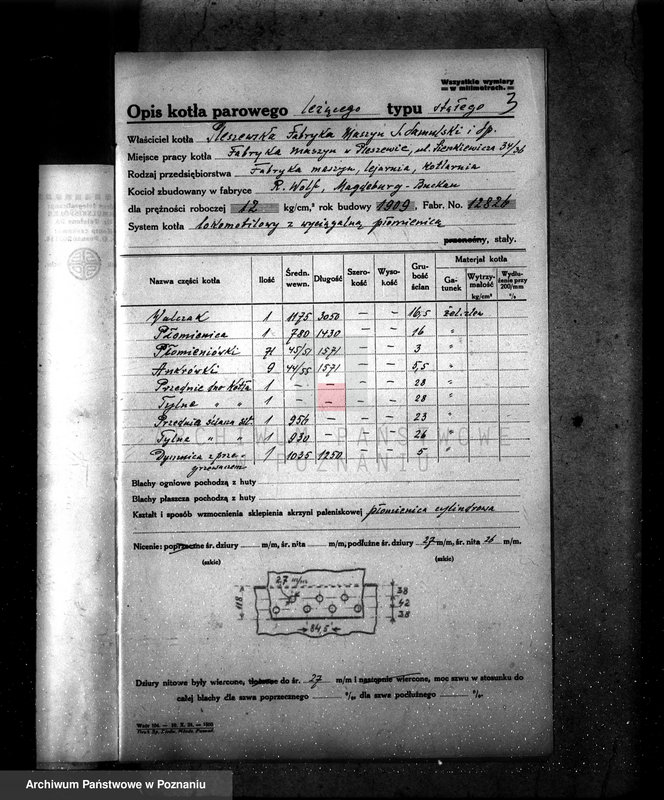 Wszystkie wymiary
w milimetrach.
Opis kotła parowego leżącego typu stałego 3
Właściciel kotła Pleszewska Fabryka Maszyn S. Samulski i Sp.
Miejsce pracy kotła Fabryka maszyn w Pleszewie, ul. Sienkiewicza 34/36
Rodzaj przedsiębiorstwa Fabryka maszyn, lejarnia, kotlarnia
Kocioł zbudowany w fabryce R. Wolf, Magdeburg-Buckau
dla prężności roboczej 12 kg/cm,² rok budowy 1909. Fabr. No. 12826
System kotła Lokomobilowy z wyciągalną płomienicą
przenośny, stały.
Nazwa części kotła Ilość Średn. wewn. Długość Szerokość Wysokość Grubość ścian Materjał kotła
Gatunek Wytrzymałość kg/cm² Wydłużenie przy 200/mm %
Walczak 1 1175 3050 — — 16,5 żel. zlew
Płomienica 1 780 1430 — — 16 "
Płomieniówki 71 45/51 1571 — — 3 "
Ankrówki 9 44/55 1571 — — 5,5 "
Przednie dno kotła 1 — — — — 28 "
Tylne " " 1 — — — — 28 "
Przednia ściana sit. 1 956 — — — 23 "
Tylna " " 1 930 — — — 26 "
Dymnica z prze- 1 1035 1250 — — 5 "
grzewaczem
ARCHIWUM PAŃSTWOWE
W POZNANIU
Blachy ogniowe pochodzą z huty
Blachy płaszcza pochodzą z huty
Kształt i sposób wzmocnienia sklepienia skrzyni paleniskowej płomienica cylindrowa
Nicenie: poprzeczne śr. dziury m/m, śr. nita m/m, podłużne śr. dziury 27 m/m, śr. nita 26 m/m.
(szkic) (szkic)
27 m/m
118
38
42
38
84,5
Dziury nitowe były wiercone, tłoczone do śr. 27 m/m i następnie wiercone, moc szwu w stosunku do
całej blachy dla szwa poprzecznego %, dla szwa podłużnego %.
Archiwum Państwowe w Poznaniu